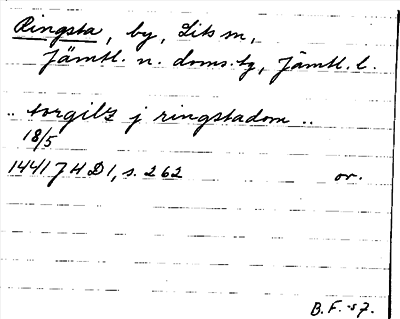 Ringsta, by, Lits sn,
Jämtl. n. doms:tg, Jämtl. l.
.. torgilz j ringstadom ..
18/5
1441 JHD1, s. 262 or.
B.F. -57.